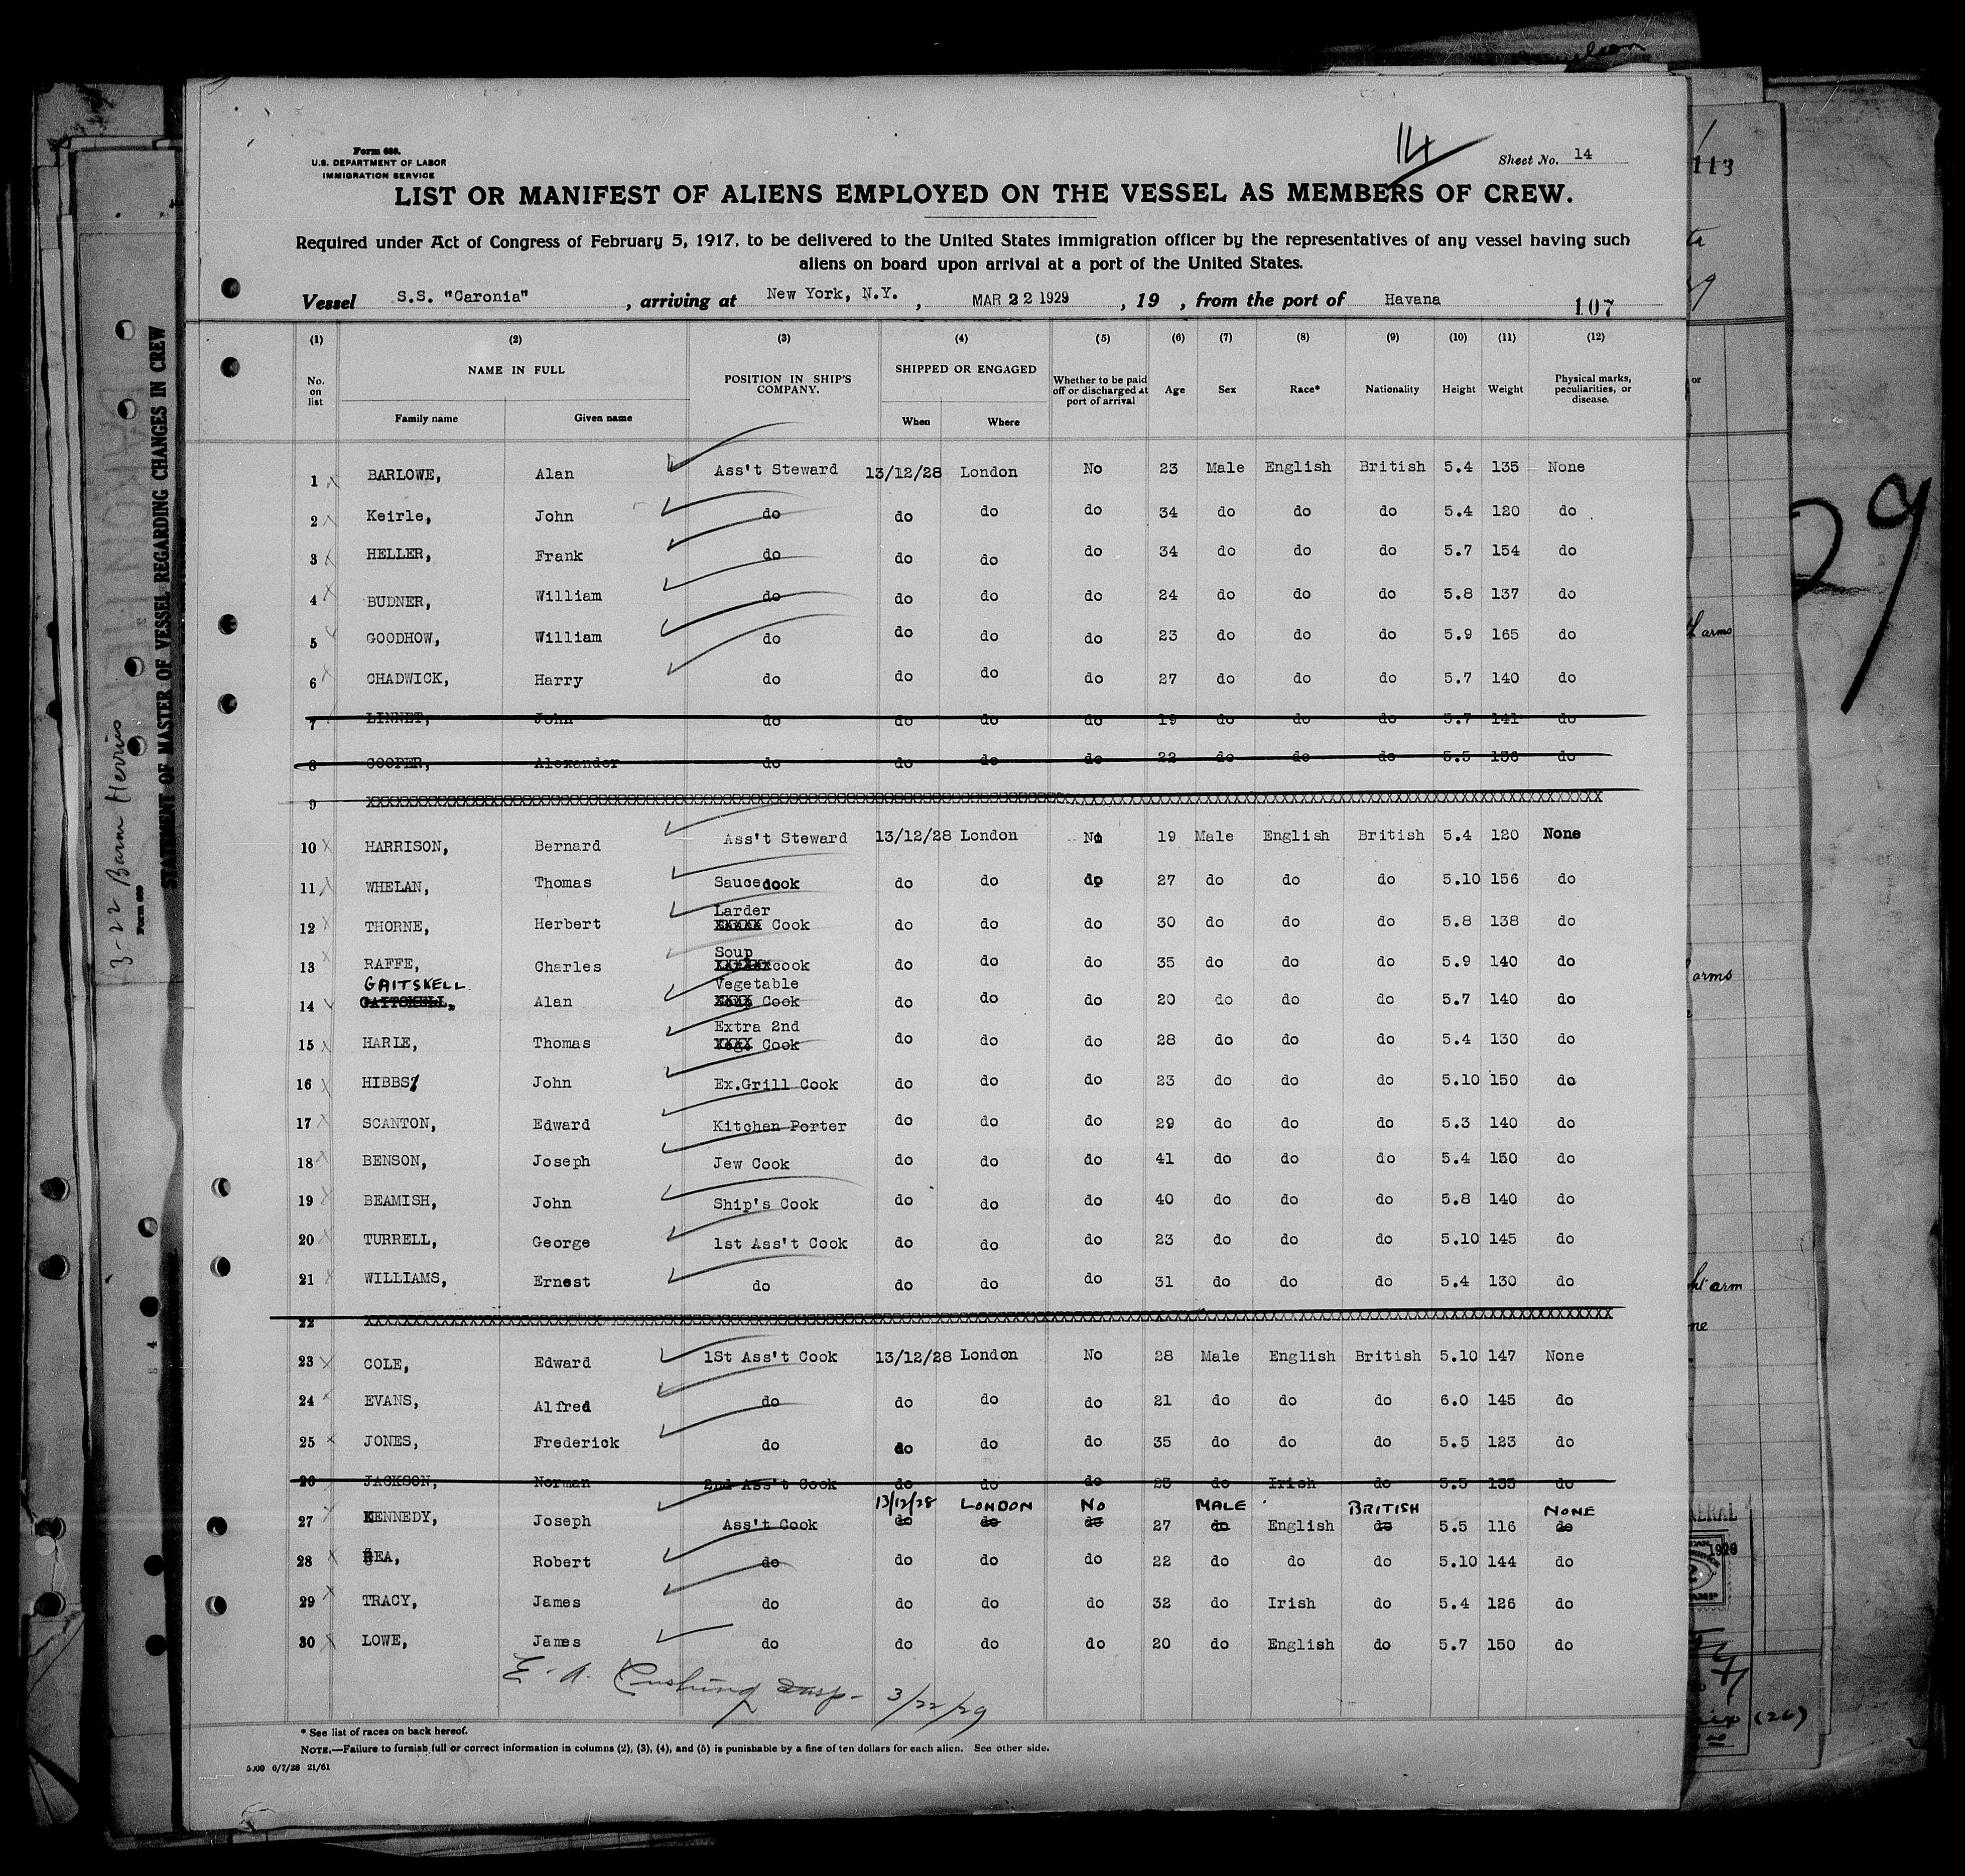 14
Form 680.
U.S. DEPARTMENT OF LABOR
IMMIGRATION SERVICE
Sheet No. 14
LIST OR MANIFEST OF ALIENS EMPLOYED ON THE VESSEL AS MEMBERS OF CREW.
Required under Act of Congress of February 5, 1917, to be delivered to the United States immigration officer by the representatives of any vessel having such
aliens on board upon arrival at a port of the United States.
Vessel S.S. "Caronia" , arriving at New York, N.Y. , MAR 22 1929 , 19 , from the port of Havana 107
(1) (2) (3) (4) (5) (6) (7) (8) (9) (10) (11) (12)
No. on list NAME IN FULL Family name Given name POSITION IN SHIP'S COMPANY. SHIPPED OR ENGAGED When Where Whether to be paid off or discharged at port of arrival Age Sex Race* Nationality Height Weight Physical marks, peculiarities, or disease.
1 BARLOWE, Alan Ass't Steward 13/12/28 London No 23 Male English British 5.4 135 None
2 Keirle, John do do do do 34 do do do 5.4 120 do
3 HELLER, Frank do do do do 34 do do do 5.7 154 do
4 BUDNER, William do do do do 24 do do do 5.8 137 do
5 GOODHOW, William do do do do 23 do do do 5.9 165 do
6 CHADWICK, Harry do do do do 27 do do do 5.7 140 do
7 LINNET, John do do do do 19 do do do 5.7 141 do
8 COOPER, Alexander do do do do 22 do do do 5.5 136 do
9
10 HARRISON, Bernard Ass't Steward 13/12/28 London No 19 Male English British 5.4 120 None
11 WHELAN, Thomas Saucecook do do do 27 do do do 5.10 156 do
12 THORNE, Herbert Larder Cook do do do 30 do do do 5.8 138 do
13 RAFFE, Charles Soup cook do do do 35 do do do 5.9 140 do
14 GAITSKELL Alan Vegetable Cook do do do 20 do do do 5.7 140 do
15 HARLE, Thomas Extra 2nd Cook do do do 28 do do do 5.4 130 do
16 HIBBS John Ex.Grill Cook do do do 23 do do do 5.10 150 do
17 SCANTON, Edward Kitchen Porter do do do 29 do do do 5.3 140 do
18 BENSON, Joseph Jew Cook do do do 41 do do do 5.4 150 do
19 BEAMISH, John Ship's Cook do do do 40 do do do 5.8 140 do
20 TURRELL, George 1st Ass't Cook do do do 23 do do do 5.10 145 do
21 WILLIAMS, Ernest do do do do 31 do do do 5.4 130 do
22
23 COLE, Edward 1St Ass't Cook 13/12/28 London No 28 Male English British 5.10 147 None
24 EVANS, Alfred do do do do 21 do do do 6.0 145 do
25 JONES, Frederick do do do do 35 do do do 5.5 123 do
26 JACKSON, Norman 2nd Ass't Cook do do do 23 do Irish do 5.5 135 do
27 KENNEDY, Joseph Ass't Cook 13/12/28 LONDON No 27 MALE English BRITISH 5.5 116 NONE
28 REA, Robert do do do do 22 do do do 5.10 144 do
29 TRACY, James do do do do 32 do Irish do 5.4 126 do
30 LOWE, James do do do do 20 do English do 5.7 150 do
E. A. Cushing Insp- 3/22/29
* See list of races on back hereof.
NOTE.—Failure to furnish full or correct information in columns (2), (3), (4), and (5) is punishable by a fine of ten dollars for each alien. See other side.
5000 6/7/28 21/61
STATEMENT OF MASTER OF VESSEL REGARDING CHANGES IN CREW
Form 680
113
29
arms
arms
arm
(26)